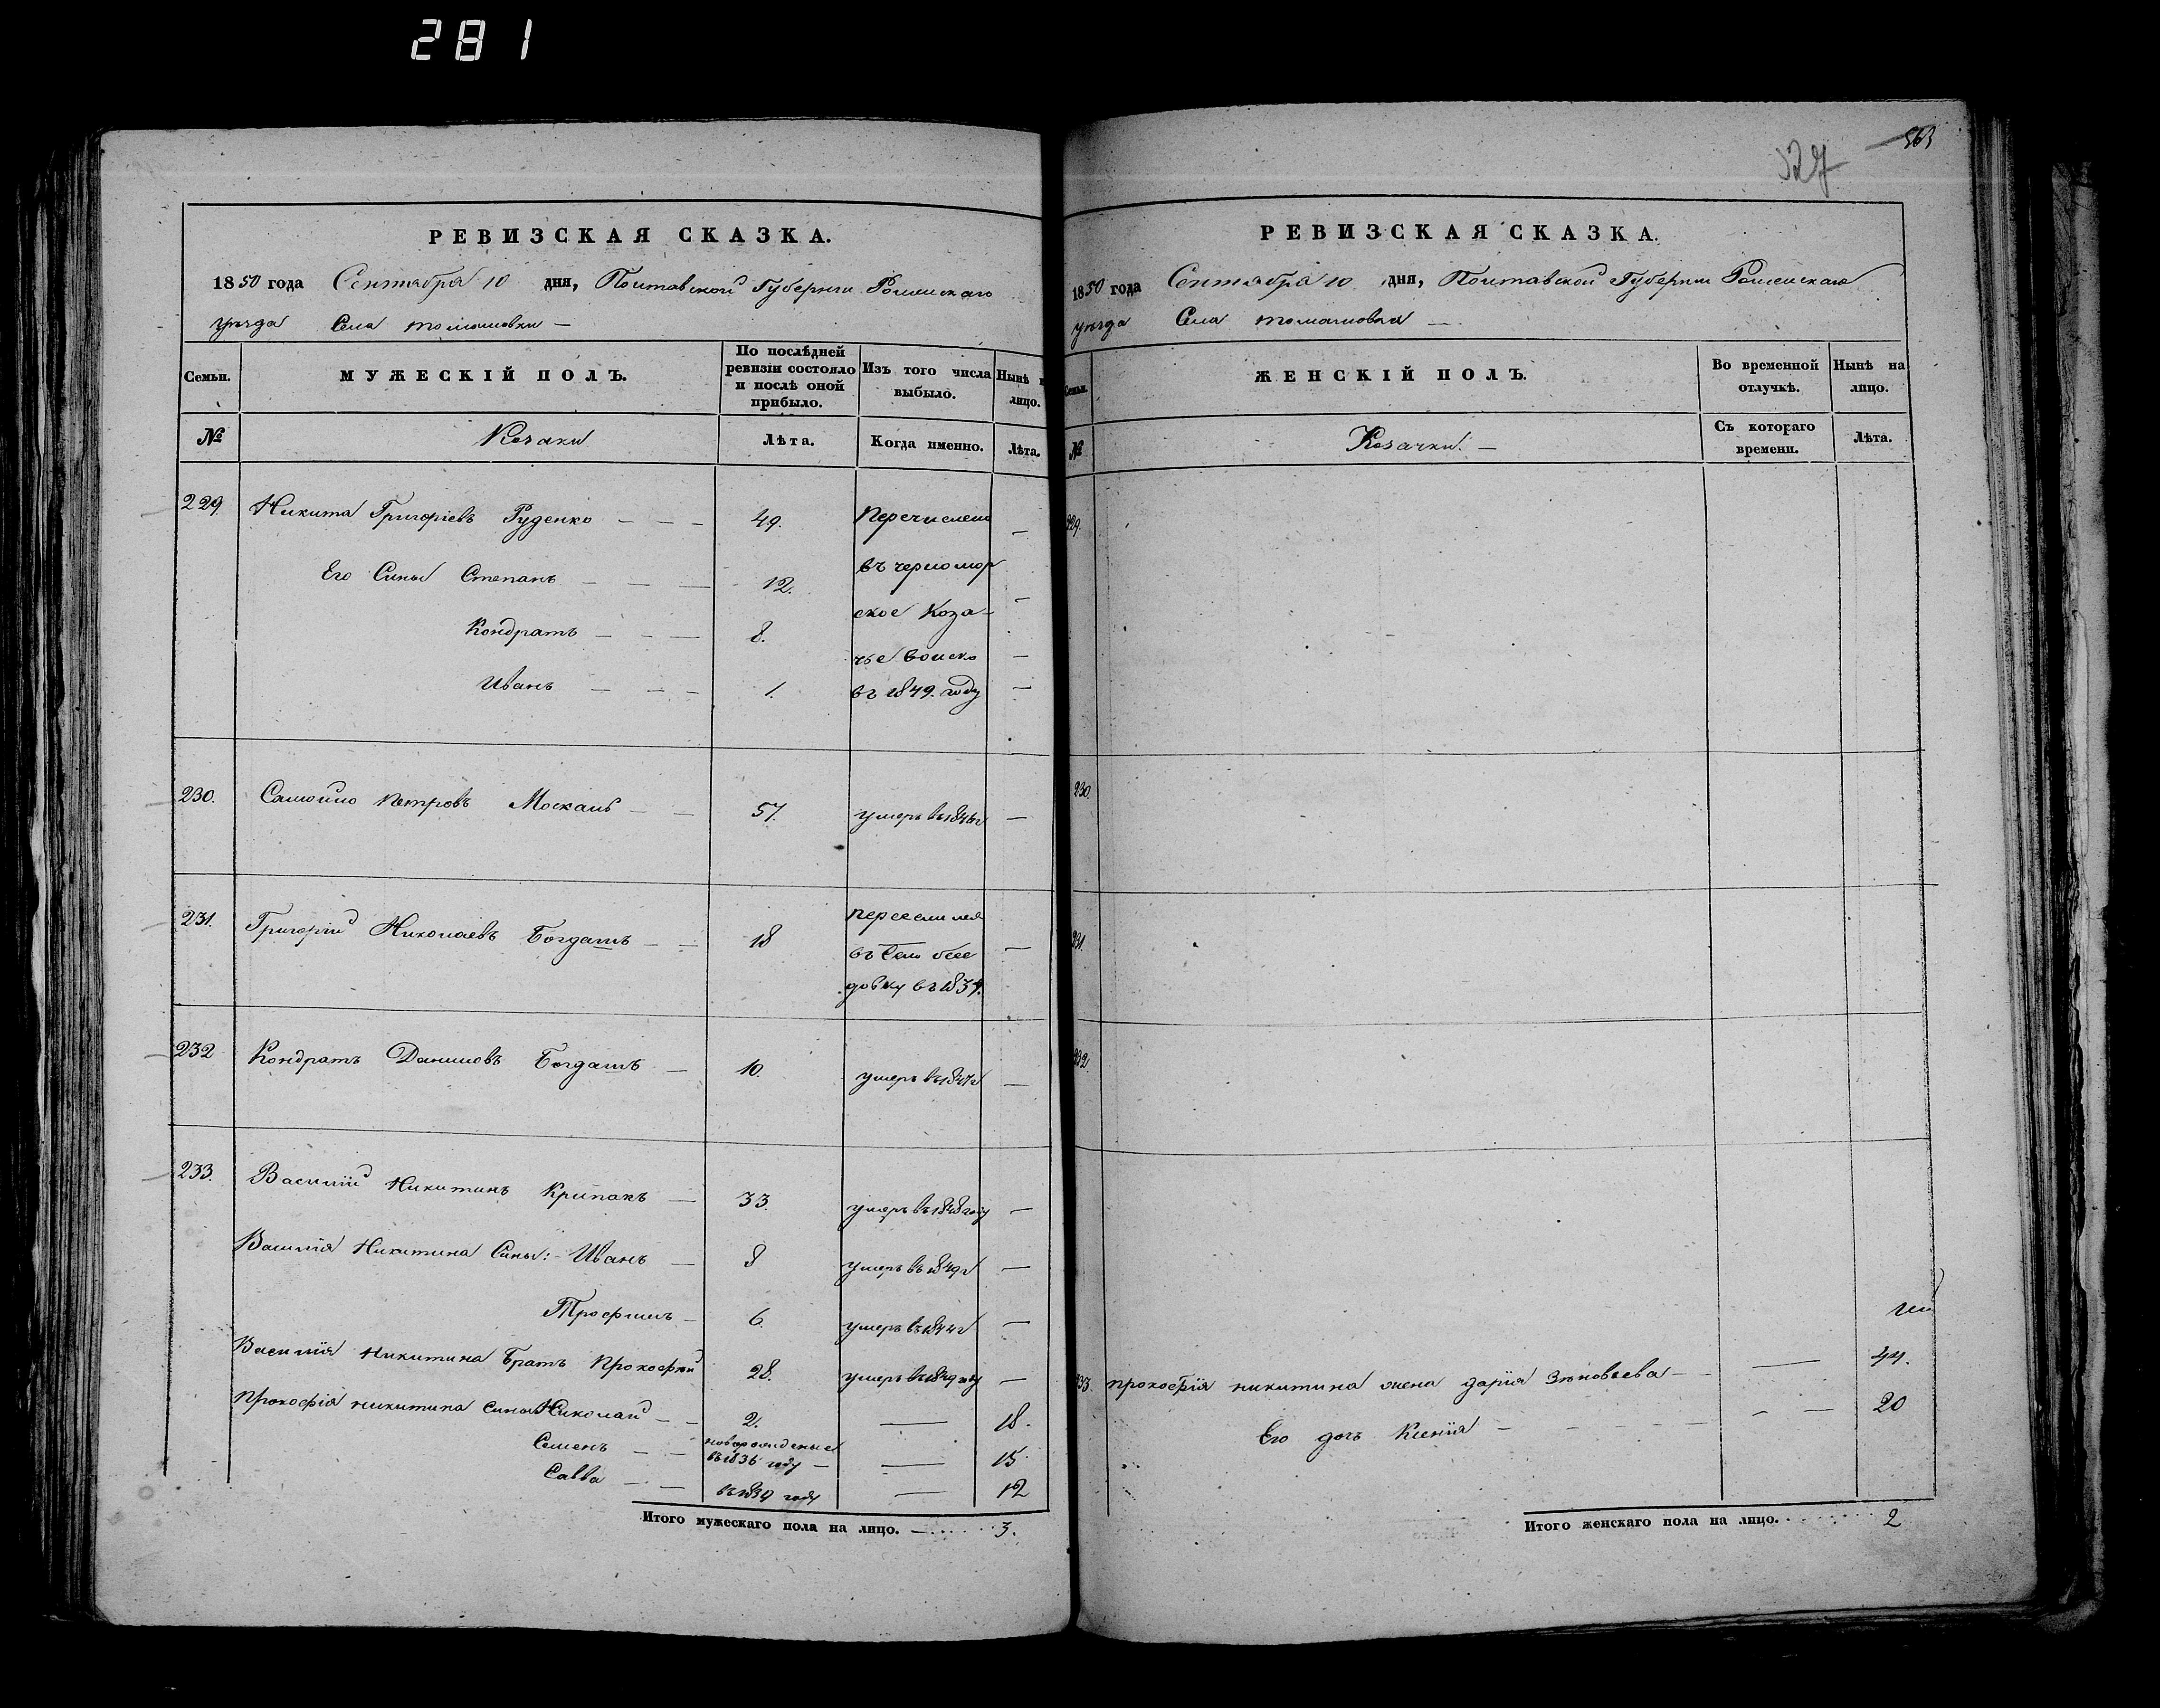 281
РЕВИЗСКАЯ СКАЗКА.
1850 года Сентября 10 дня, Полтавской Губернии Роменскаго
уезда Села Томашовки —
Семьи.
МУЖЕСКІЙ ПОЛЪ.
По послѣдней ревизіи состояло и послѣ оной прибыло.
Изъ того числа выбыло.
Нынѣ н лицо.
№
Козаки
Лѣта.
Когда именно.
Лѣта.
229. Никита Григоріевъ Руденко — — — 49. Перечислены —
Его Сыны Степанъ — — — 12. въ черномор —
ское Коза-
Кондратъ — — — 8.
чье войско —
Иванъ — — — 1. въ 1849. году —
230. Самойло Петровъ Москаль — — 57. умеръ въ 1846г —
231. Григорій Николаевъ Богдатъ — — 18 переселился
въ Село бесе —
довку въ 1839.
232 Кондратъ Даниловъ Богдатъ — 10. умеръ въ 1847г —
233. Василий Никитинъ Крипакъ — 33. умеръ въ 1848 году —
Василія Никитина Сыны: Иванъ — 8 умеръ въ 1849г —
Трофимъ — 6. умеръ въ 1844г —
Василія Никитина Братъ Прокофій 28. умеръ въ 1849 году —
Прокофія Никитина Сыны Николай — — 2. — 18.
Семенъ — — новорожденные въ 1836 году — — 15
Савва — — въ 1839 году — 12
Итого мужескаго пола на лицо. — 3.
563
327
РЕВИЗСКАЯ СКАЗКА.
1850 года Сентября 10 дня, Полтавской Губернии Роменскаго
уезда Села Томашовка —
Семьи.
ЖЕНСКІЙ ПОЛЪ.
Во временной отлучкѣ.
Нынѣ на лицо.
№
Козачки. —
Съ котораго времени.
Лѣта.
229.
230.
231.
232.
233. Прокофія Никитина жена дарія Зѣновьева — — 44.
Его дочь Ксенія — — — 20
Итого женскаго пола на лицо. 2